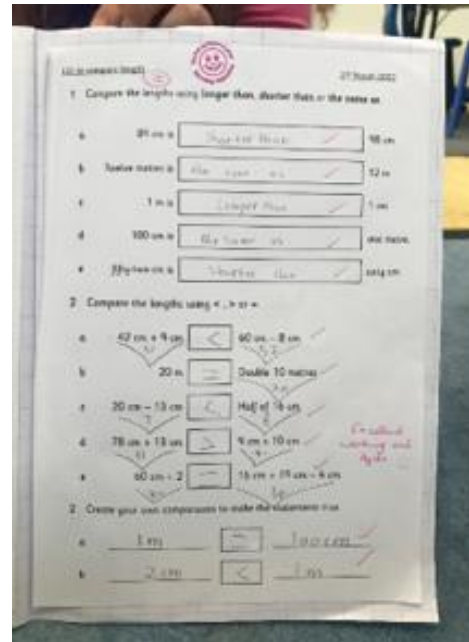 LO: to compare length
27 March 2022
1 Compare the lengths using longer than, shorter than or the same as
a 89 cm is shorter than 98 cm
b Twelve metres is the same as 12 m
c 1 m is Longer than 1 cm
d 100 cm is the same as one metre
e fifty-two cm is shorter than sixty cm
2 Compare the lengths using < , > or =
a 42 cm + 9 cm < 60 cm - 8 cm
51 52
b 20 m = Double 10 metres
20
c 20 cm - 13 cm < Half of 16 cm
7 8
d 78 cm + 13 cm > 9 cm + 10 cm
e 60 cm ÷ 2 = 15 cm + 19 cm - 4 cm
Excellent
working out
2 Create your own comparisons to make the statements true
a 1m = 100cm
b 2cm < 1m